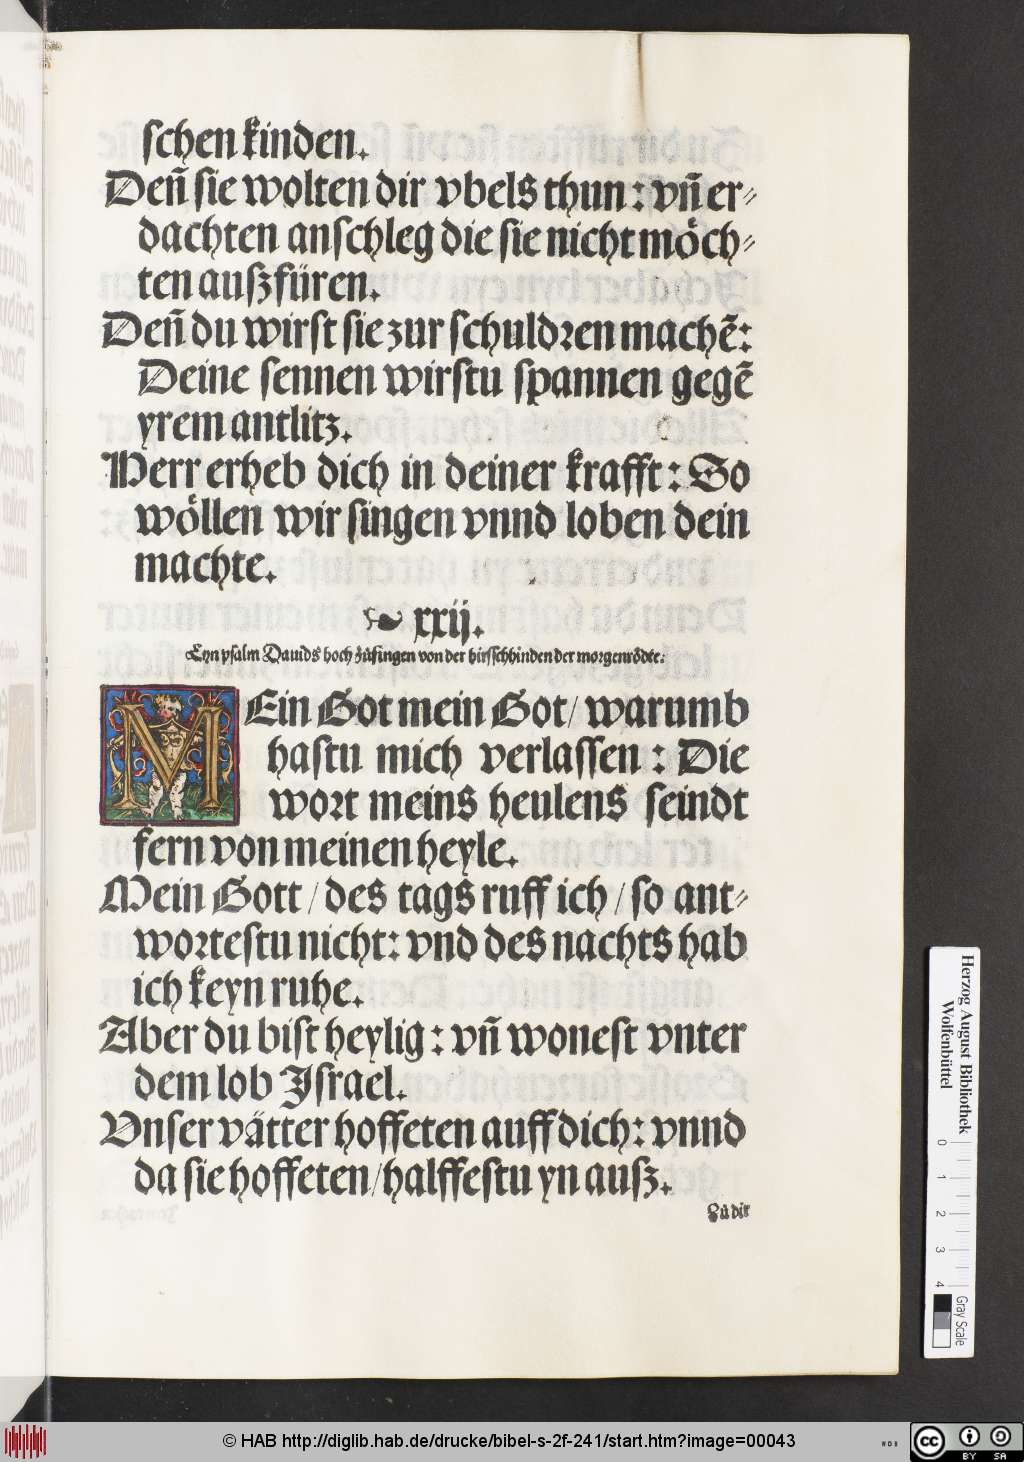 schen kinden.
Deñ sie wolten dir vbels thun: vñ er⸗
dachten anschleg die sie nicht möch⸗
ten außfüren.
Deñ du wirst sie zur schuldren machẽ:
Deine sennen wirstu spannen gegẽ
yrem antlitz.
Herr erheb dich in deiner krafft: So
wöllen wir singen vnnd loben dein
machte.
xxij.
Eyn psalm Dauids hoch zů singen von der hirsschhinden der morgenrödte.
MEin Got mein Got/ warumb
hastu mich verlassen: Die
wort meins heulens seindt
fern von meinen heyle.
Mein Gott/ des tags ruff ich/ so ant⸗
wortestu nicht: vnd des nachts hab
ich keyn ruhe.
Aber du bist heylig: vñ wonest vnter
dem lob Israel.
Vnser vätter hoffeten auff dich: vnnd
da sie hoffeten/ halffestu yn auß.
Zů dir
Herzog August Bibliothek
Wolfenbüttel
0 1 2 3 4
Gray Scale
© HAB http://diglib.hab.de/drucke/bibel-s-2f-241/start.htm?image=00043
WDB
cc BY SA